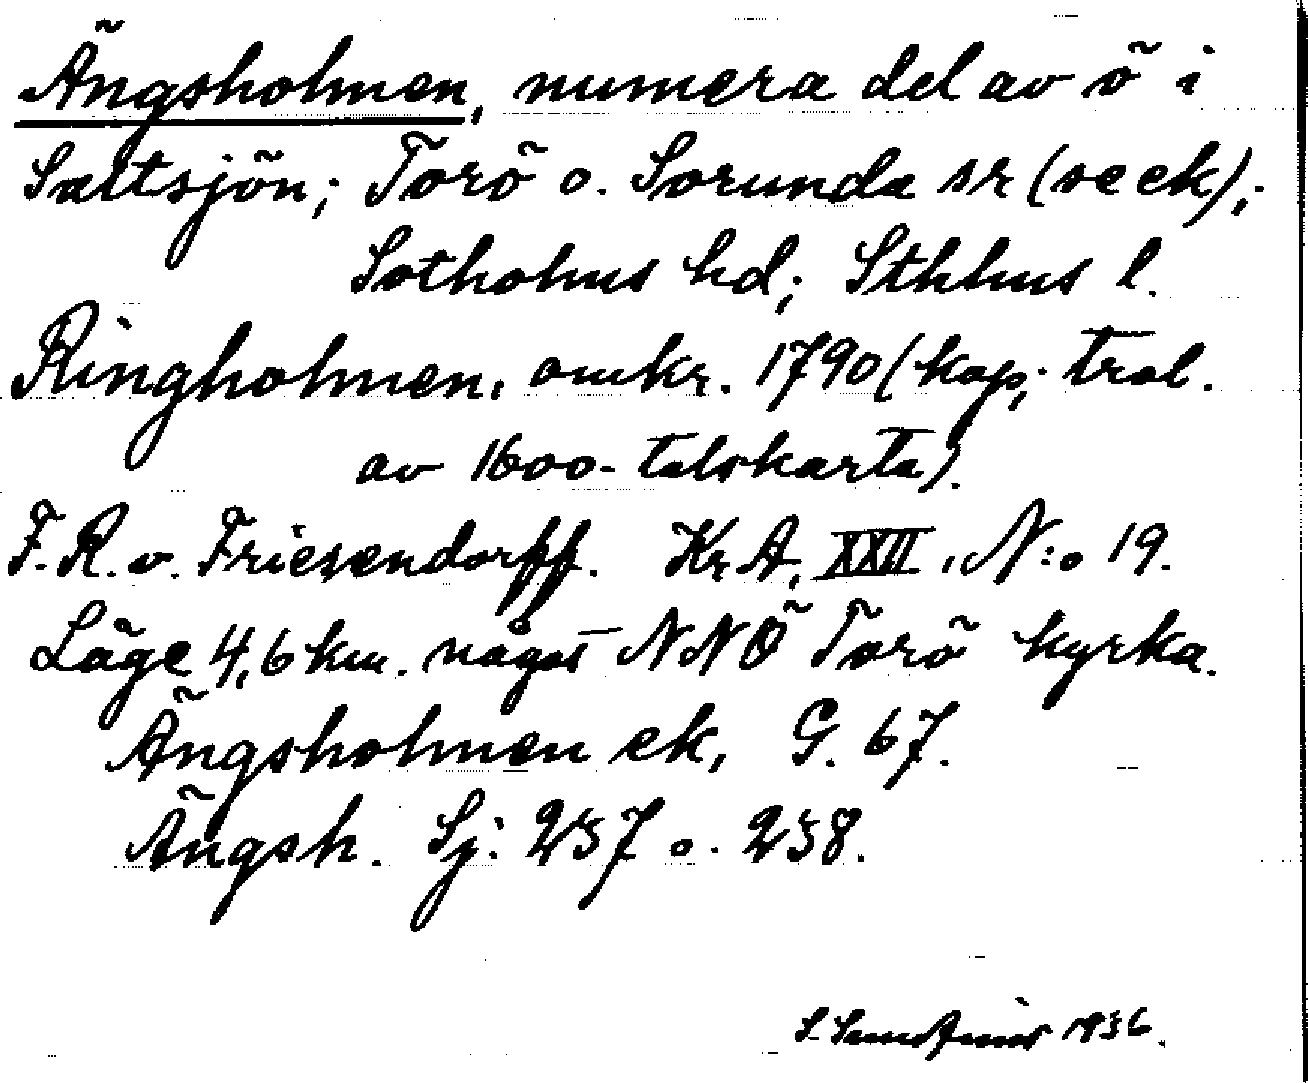 Ängsholmen, numera del av ö i
Saltsjön; Torö o. Sorunda sr (se ek);
Sotholms hd; Sthlms l.
Ringholmen, omkr. 1790 (kop; trol.
av 1600-talskarta).
F. R. v. Friesendorff. Kr A, XXII, N:o 19.
Läge 4,6 km. något NNÖ Torö kyrka.
Ängsholmen ek, G. 67.
Ängsh. Sj: 237 o. 238.
S. 1936.